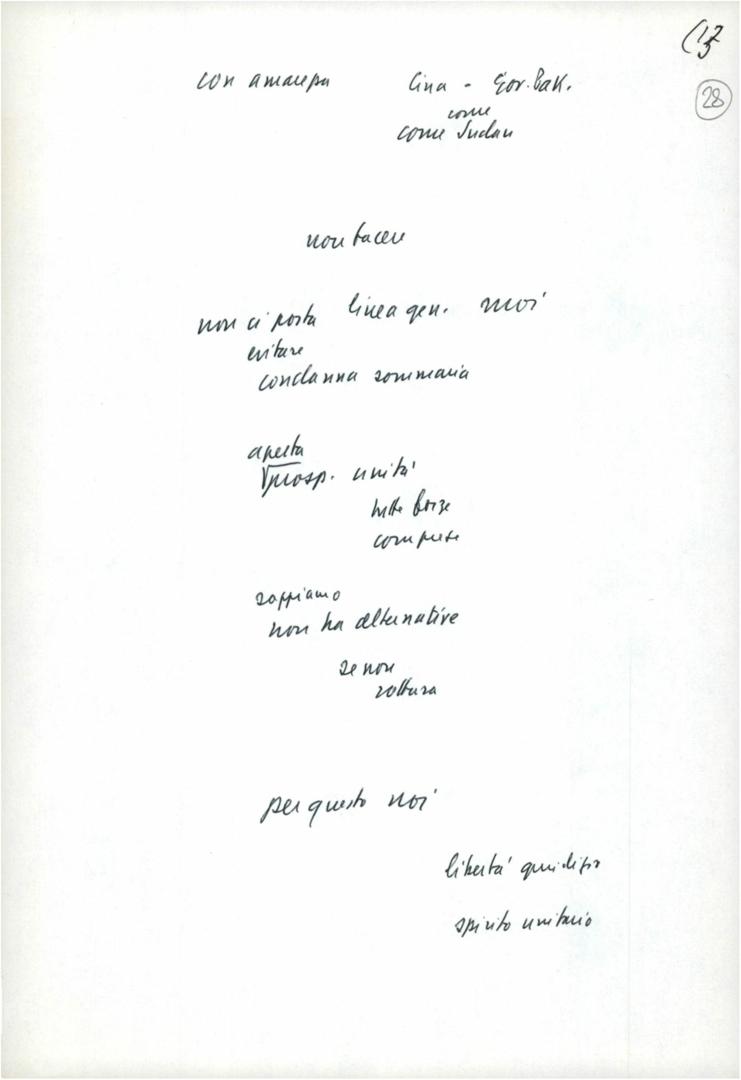 28
con amarezza Cina - Gov. Pak.
come
come Sudan
non tacere
non ci porta linea gen. noi
evitare
condanna sommaria
aperta
prosp. unità
tutte forze
comprese
sappiamo
non ha alternative
se non
rottura
per questo noi
libertà giudizio
spirito unitario